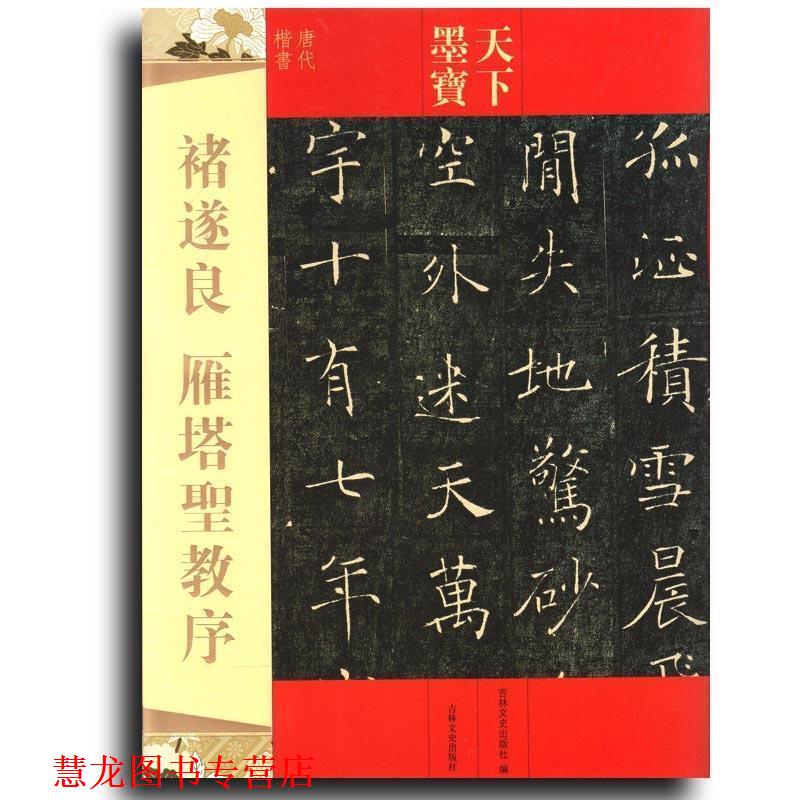 天下
墨寶
唐代
楷書
褚遂良 雁塔聖教序
孤征積雪晨飛
閒失地驚砂
空外迷天萬
宇十有七年
吉林文史出版社 編
吉林文史出版社
慧龙图书专营店